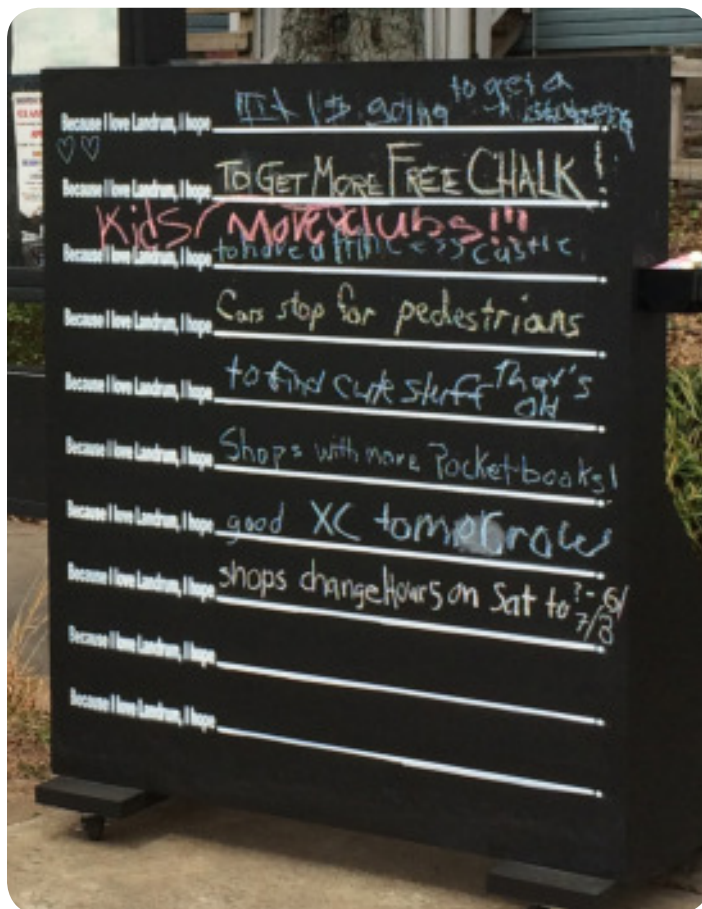 Because I love Landrum, I hope is going to get a
Because I love Landrum, I hope TO GET MORE FREE CHALK!
Kids/ More clubs!!!
Because I love Landrum, I hope to have a princess castle
Because I love Landrum, I hope Cars stop for pedestrians
Because I love Landrum, I hope to find cute stuff That's old
Because I love Landrum, I hope Shops with more Pocketbooks!
Because I love Landrum, I hope good XC tomorrow
Because I love Landrum, I hope shops change Hours on Sat to ?- 6/ 7/8
Because I love Landrum, I hope
Because I love Landrum, I hope